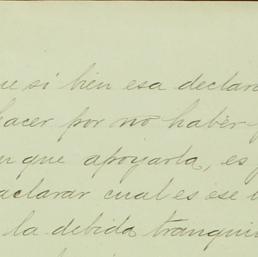 ue si bien esa declara
hacer por no haber
n que apoyarla, es
aclarar cual es ese
la debida tranqui